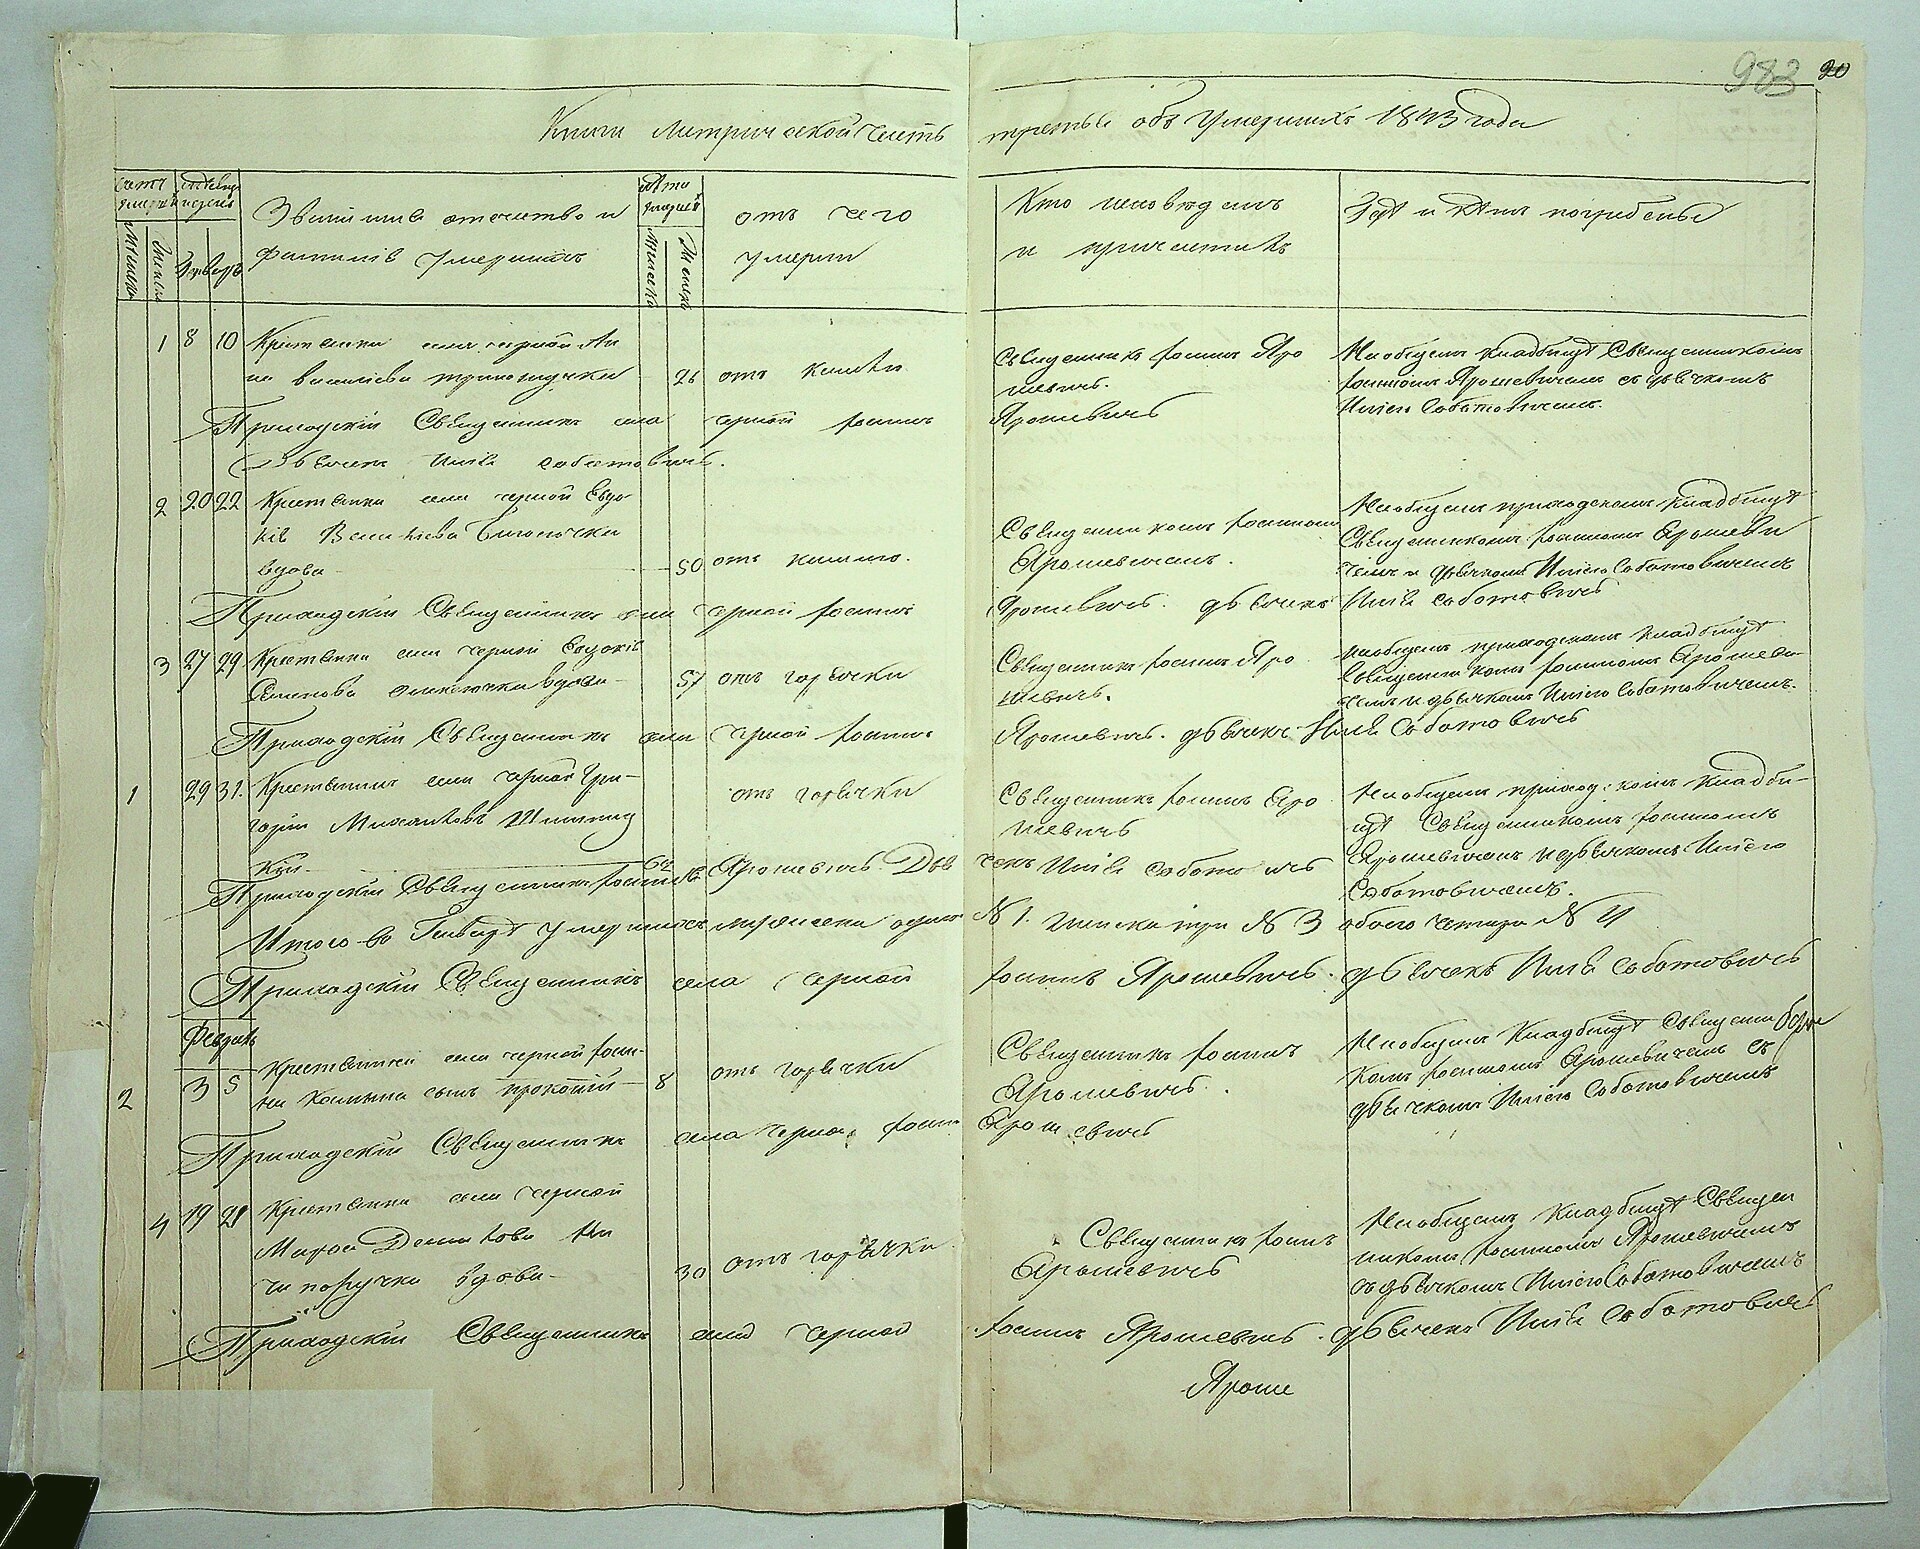 983 20
Книги Метрической часть третья объ Умершихъ 1843 года
счетъ умершихъ
Мужеска
Женска
Званіе имя отечество и
фамилія Умершихъ
лѣта умершихъ
Мужеска
Женска
отъ чего
умерли
Кто исповѣдалъ
и причастилъ
Гдѣ и кѣмъ погребены
1 8 10 Крестьянка села черной Ан
на 26 отъ кашлю
Священникъ Іоаннъ Яро
шевичъ.
На общемъ кладбищѣ Священникомъ
Іоанномъ Ярошевичемъ съ дьячкомъ
Иліею Соботовичемъ.
Приходскій Священникъ села черной Іоаннъ Ярошевичъ
Дьячекъ Илія Соботовичъ.
2 20 22 Крестьянка села черной Евдо
кія
вдова 50 отъ кашлю.
Священникомъ Іоанномъ
Ярошевичемъ.
На общемъ приходскомъ кладбищѣ
Священникомъ Іоанномъ Ярошеви
чемъ и дьячкомъ Иліею Соботовичемъ
Приходскій Священникъ села черной Іоаннъ Ярошевичъ. дьячекъ Илія Соботовичъ
3 27 29 Крестьянка села черной Евдокія
Семенова вдова 57 отъ горячки
Священникъ Іоаннъ Яро
шевичъ.
на общемъ приходскомъ кладбищѣ
Священникомъ Іоанномъ Ярошеви
чемъ и дьячкомъ Иліею Соботовичемъ.
Приходскій Священникъ села черной Іоаннъ Ярошевичъ. дьячекъ Илія Соботовичъ
1 29 31. Крестьянинъ села черной Гри-
горій Михайловъ
кій отъ горячки
Священникъ Іоаннъ Яро
шевичъ
На общемъ приходскомъ кладби-
щѣ Священникомъ Іоанномъ
Ярошевичемъ и дьячкомъ Иліею
Соботовичемъ.
Приходскій Священникъ Іоаннъ Ярошевичъ Дья чекъ Илія Соботовичъ
Итого во Генварѣ умершихъ мужеска одинъ № 1. женска три № 3 обоего четыре № 4
Приходскій Священникъ села черной Іоаннъ Ярошевичъ. дьячекъ Илія Соботовичъ
Февраль
2 3 5 Крестьянина села черной Іоан-
на сынъ прокопій 8 отъ горячки
Священникъ Іоаннъ
Ярошевичъ.
На общемъ Кладбищѣ Священни
комъ Іоанномъ Ярошевичемъ съ
дьячкомъ Иліею Соботовичемъ
Приходскій Священникъ села черной Іоаннъ Ярошевичъ
4 19 21 Крестьянка села черной
вдова 30 отъ горячки.
Священникъ Іоаннъ
Ярошевичъ
На общемъ кладбищѣ Священ
никомъ Іоанномъ Ярошевичемъ
съ дьячкомъ Иліею Соботовичемъ
Приходскій Священникъ села черной Іоаннъ Ярошевичъ. дьячекъ Илія Соботовичъ
Яроше